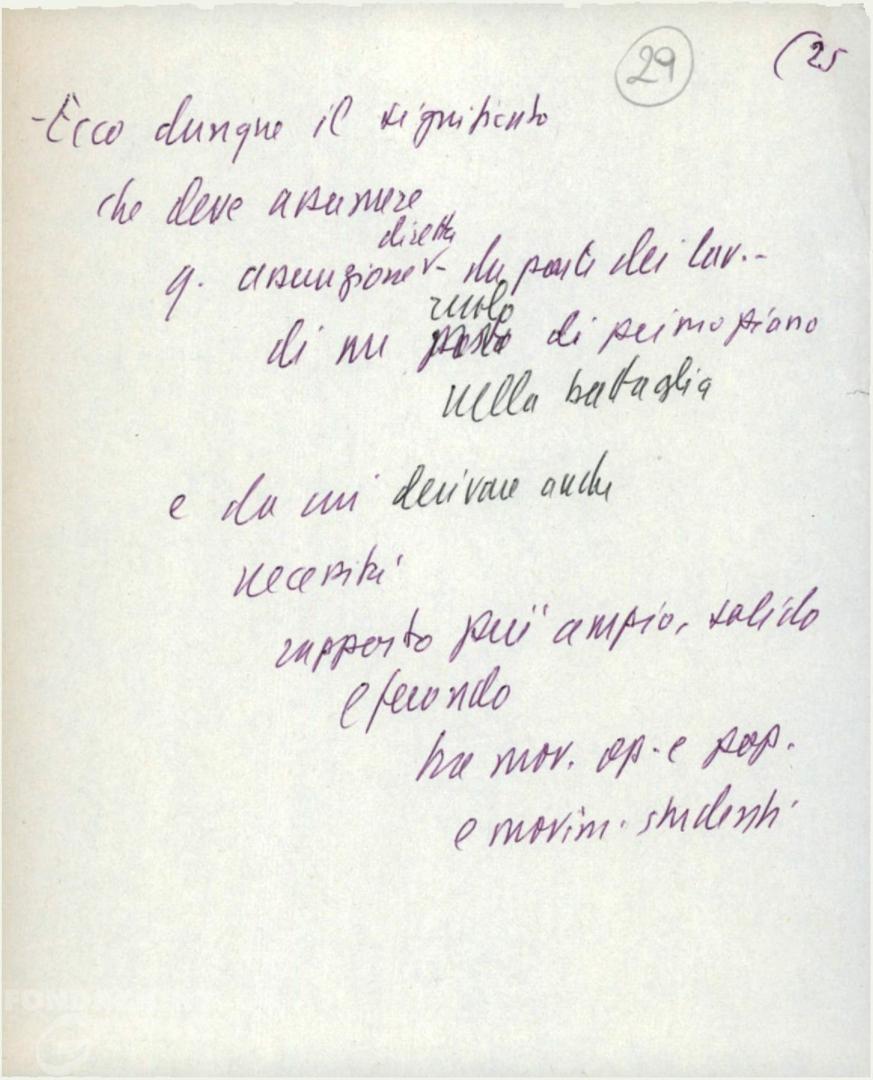 29
(25
- Ecco dunque il significato
che deve assumere
q. assunzione diretta da parte dei lav.-
di un posto ruolo di primo piano
nella battaglia
e da cui derivare anche
necessità
rapporto più ampio, solido
e fecondo
tra mov. op. e pop.
e movim. studenti
FONDAZIONE